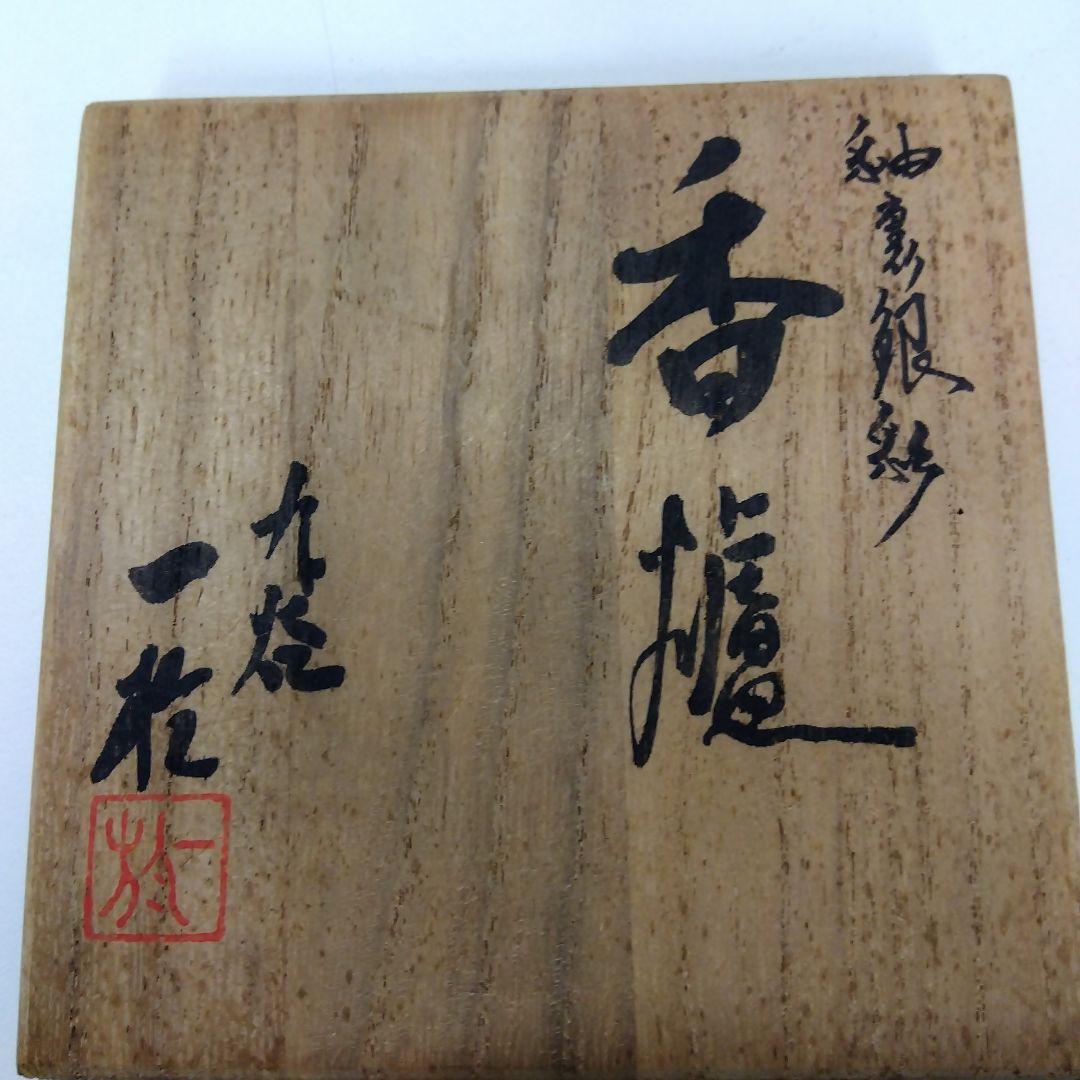 釉裏銀彩
香爐
九谷
一於
一於